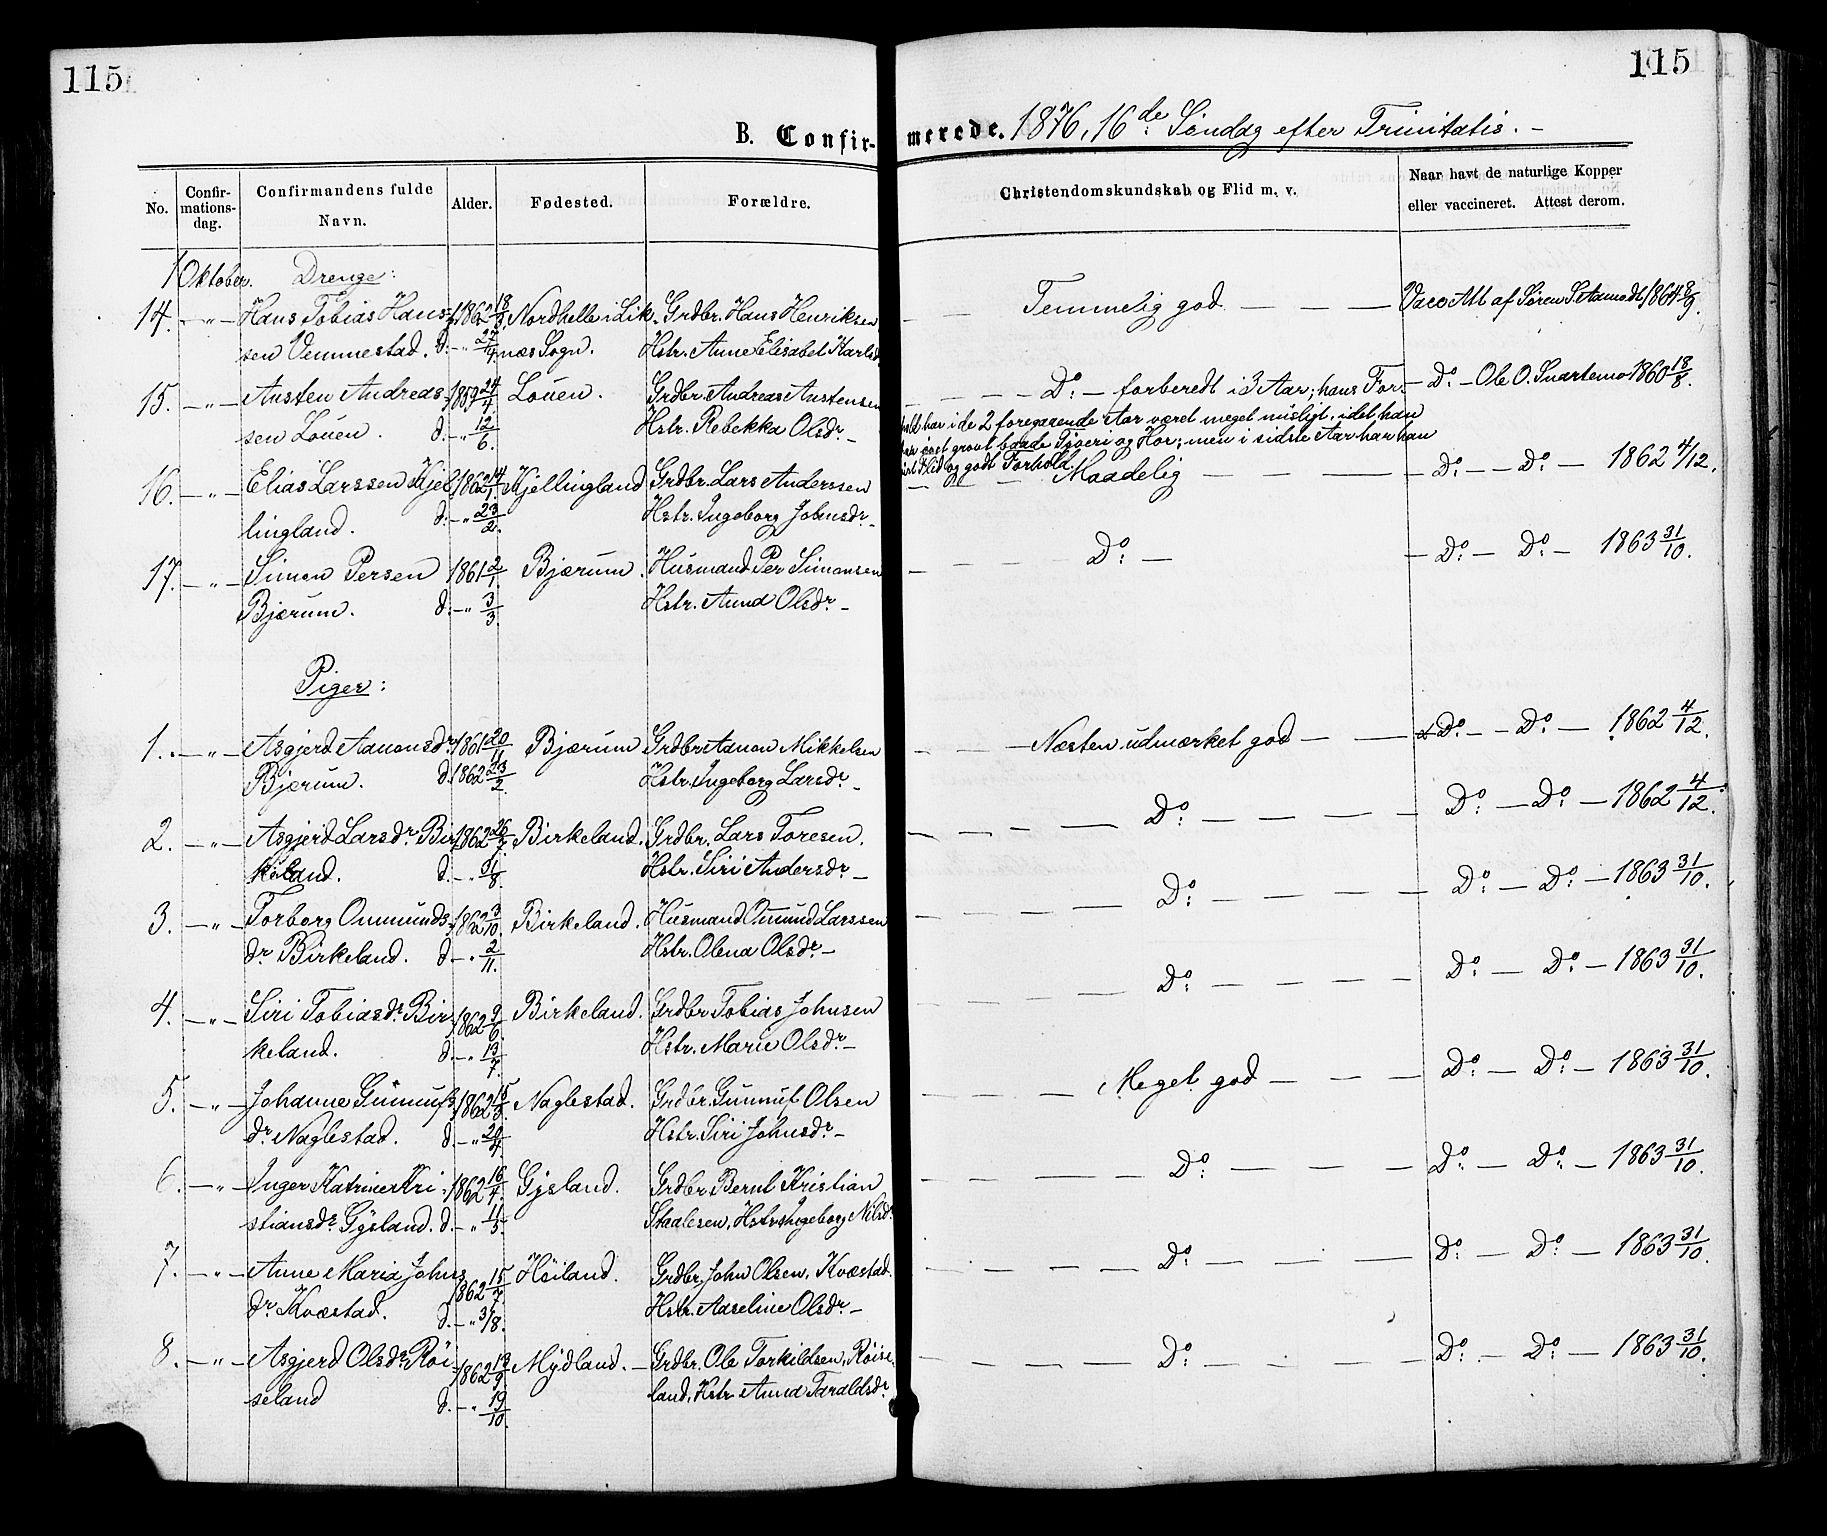 115
115
B. Confir- merede. 1876, 16de Søndag efter Trinitatis. –
No.
Confir-
mations-
dag.
Confirmandens fulde
Navn.
Alder.
Fødested.
Forældre.
Christendomskundskab og Flid m. v.
Naar havt de naturlige Kopper
eller vaccineret. Attest derom.
1 Oktober. Drenge:
14. – " – Hans Tobias Hans- 1862 18/3 Nordhelle i Lik- Grdbr. Hans Henriksen – – Temmelig god – – – Vacc Att af Søren S. Aamodt 1864 8/9.
sen Vemmestad. d: – " 27/4 næs Sogn. Hstr. Anne Elisabet Karlsd
15. – " – Austen Andreas- 1859 24/4 Louen. Grdbr. Andreas Austensen – – – Do: – forberedt i 3 Aar; hans For- – Do: – Ole O. Svartemo 1860 18/8.
sen Louen. d: – " 12/6. Hstr. Rebekka Olsdr –
hold har i de 2 foregaaende Aar været meget misligt, idet han
har øvet grovt baade Tyveri og Hor; men i sidste Aar har han
vist Flid og godt Forhold.
16. – " – Elias Larssen Kjel- 1862 14/1. Kjellingland Grdbr. Lars Anderssen – – – Maadelig – – – – Do: – – Do: – 1862 4/12.
lingland. d: – " 23/2. Hstr. Ingeborg Johnsdr –
17. – " – Simon Persen 1861 2/1. Bjærum. Husmand Per Simonsen Do: – – Do: – Do: – 1863 31/10.
Bjærum. d: – " 3/3 Hstr. Aund Olsdr –
Piger:
1. – " – Asgjerd Aanonsdr 1861 20/11 Bjærum Grdbr Aanon Mikkelsen – – – Næsten udmærket god – – – Do: – – Do: – 1862 4/12.
Bjærum. d. 1862 23/2. Hstr. Ingeborg Larsdr –
2. – " – Asgjerd Larsdr Bir- 1862 26/7 Birkeland. Grdbr. Lars Toresen. – – – – Do: – – – – – Do: – Do: – 1862 4/12.
keland. d. – " 31/8. Hstr. Siri Andersdr –
3. – " Torborg Onmunds- 1862 3/10. Birkeland. Husmand Onmund Larssen – – – – Do: – – – – – Do: – Do: – 1863 31/10.
dr Birkeland. d – " 2/11. Hstr. Olena Olsdr –
4. – " – Siri Tobiasdr Bir- 1862 9/6. Birkeland. Grdbr Tobias Johnsen – – – – Do: – – – – – Do: – Do: – 1863 31/10.
keland. d. – " 13/7 Hstr. Marie Olsdr –
5. – " – Johanne Gunnufs- 1862 15/3. Naglestad. Grdbr. Gunnuf Olsen – – – Meget god – – – Do: – Do: – 1863 31/10.
dr Naglestad. d – " 20/4. Hstr. Siri Johnsdr –
6. – " – Inger Katrine Kri- 1862 16/4. Gysland. Grdbr Bernt Kristian – – – – Do: – – – – Do: – Do: – 1863 31/10.
stiansdr Gysland. d. – " 11/5 Staalesen, Hstr. Ingeborg Nilsdr
7. – " – Anne Maria Johns- 1862 15/7 Høiland. Grdbr. John Olsen, Kvæstad. – – – – Do: – – – – Do: – Do: – 1863 31/10.
dr Kvæstad. d. – " 3/8. Hstr. Aaseline Olsdr –
8. – " – Asgjerd Olsdr Røi- 1862 13/9 Mydland. – Grdbr. Ole Torkildsen, Røise- – – – – Do: – – – – Do: – Do: – 1863 31/10.
seland d. – " 19/10. land, Hstr Anna Taraldsdr